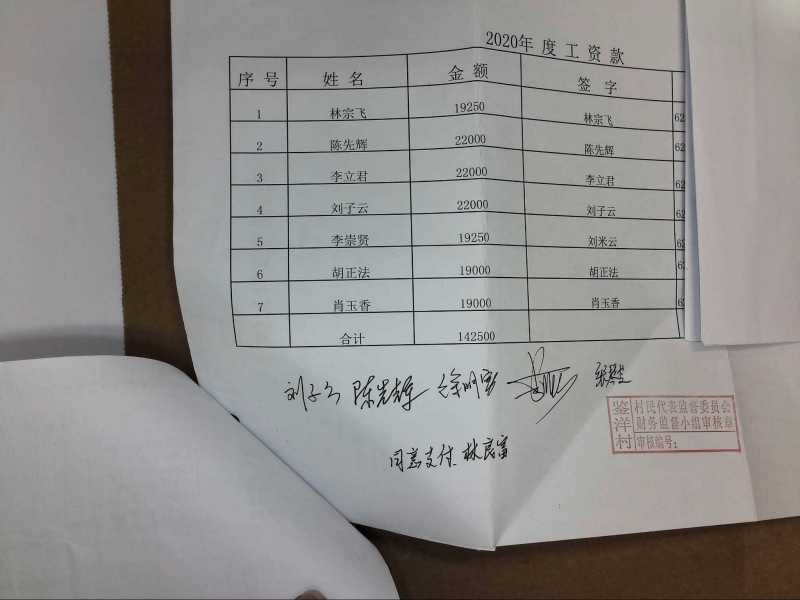 2020年 度 工 资 款
序 号 姓 名 金 额 签 字
1 林宗飞 19250 林宗飞 62
2 陈先辉 22000 陈先辉 62
3 李立君 22000 李立君 62
4 刘子云 22000 刘子云 62
5 李崇贤 19250 刘米云 62
6 胡正法 19000 胡正法 62
7 肖玉香 19000 肖玉香 6
合计 142500
刘子云 陈先辉
同意支付 林良富
鉴洋村
村民代表监督委员会
财务监督小组审核章
审核编号：